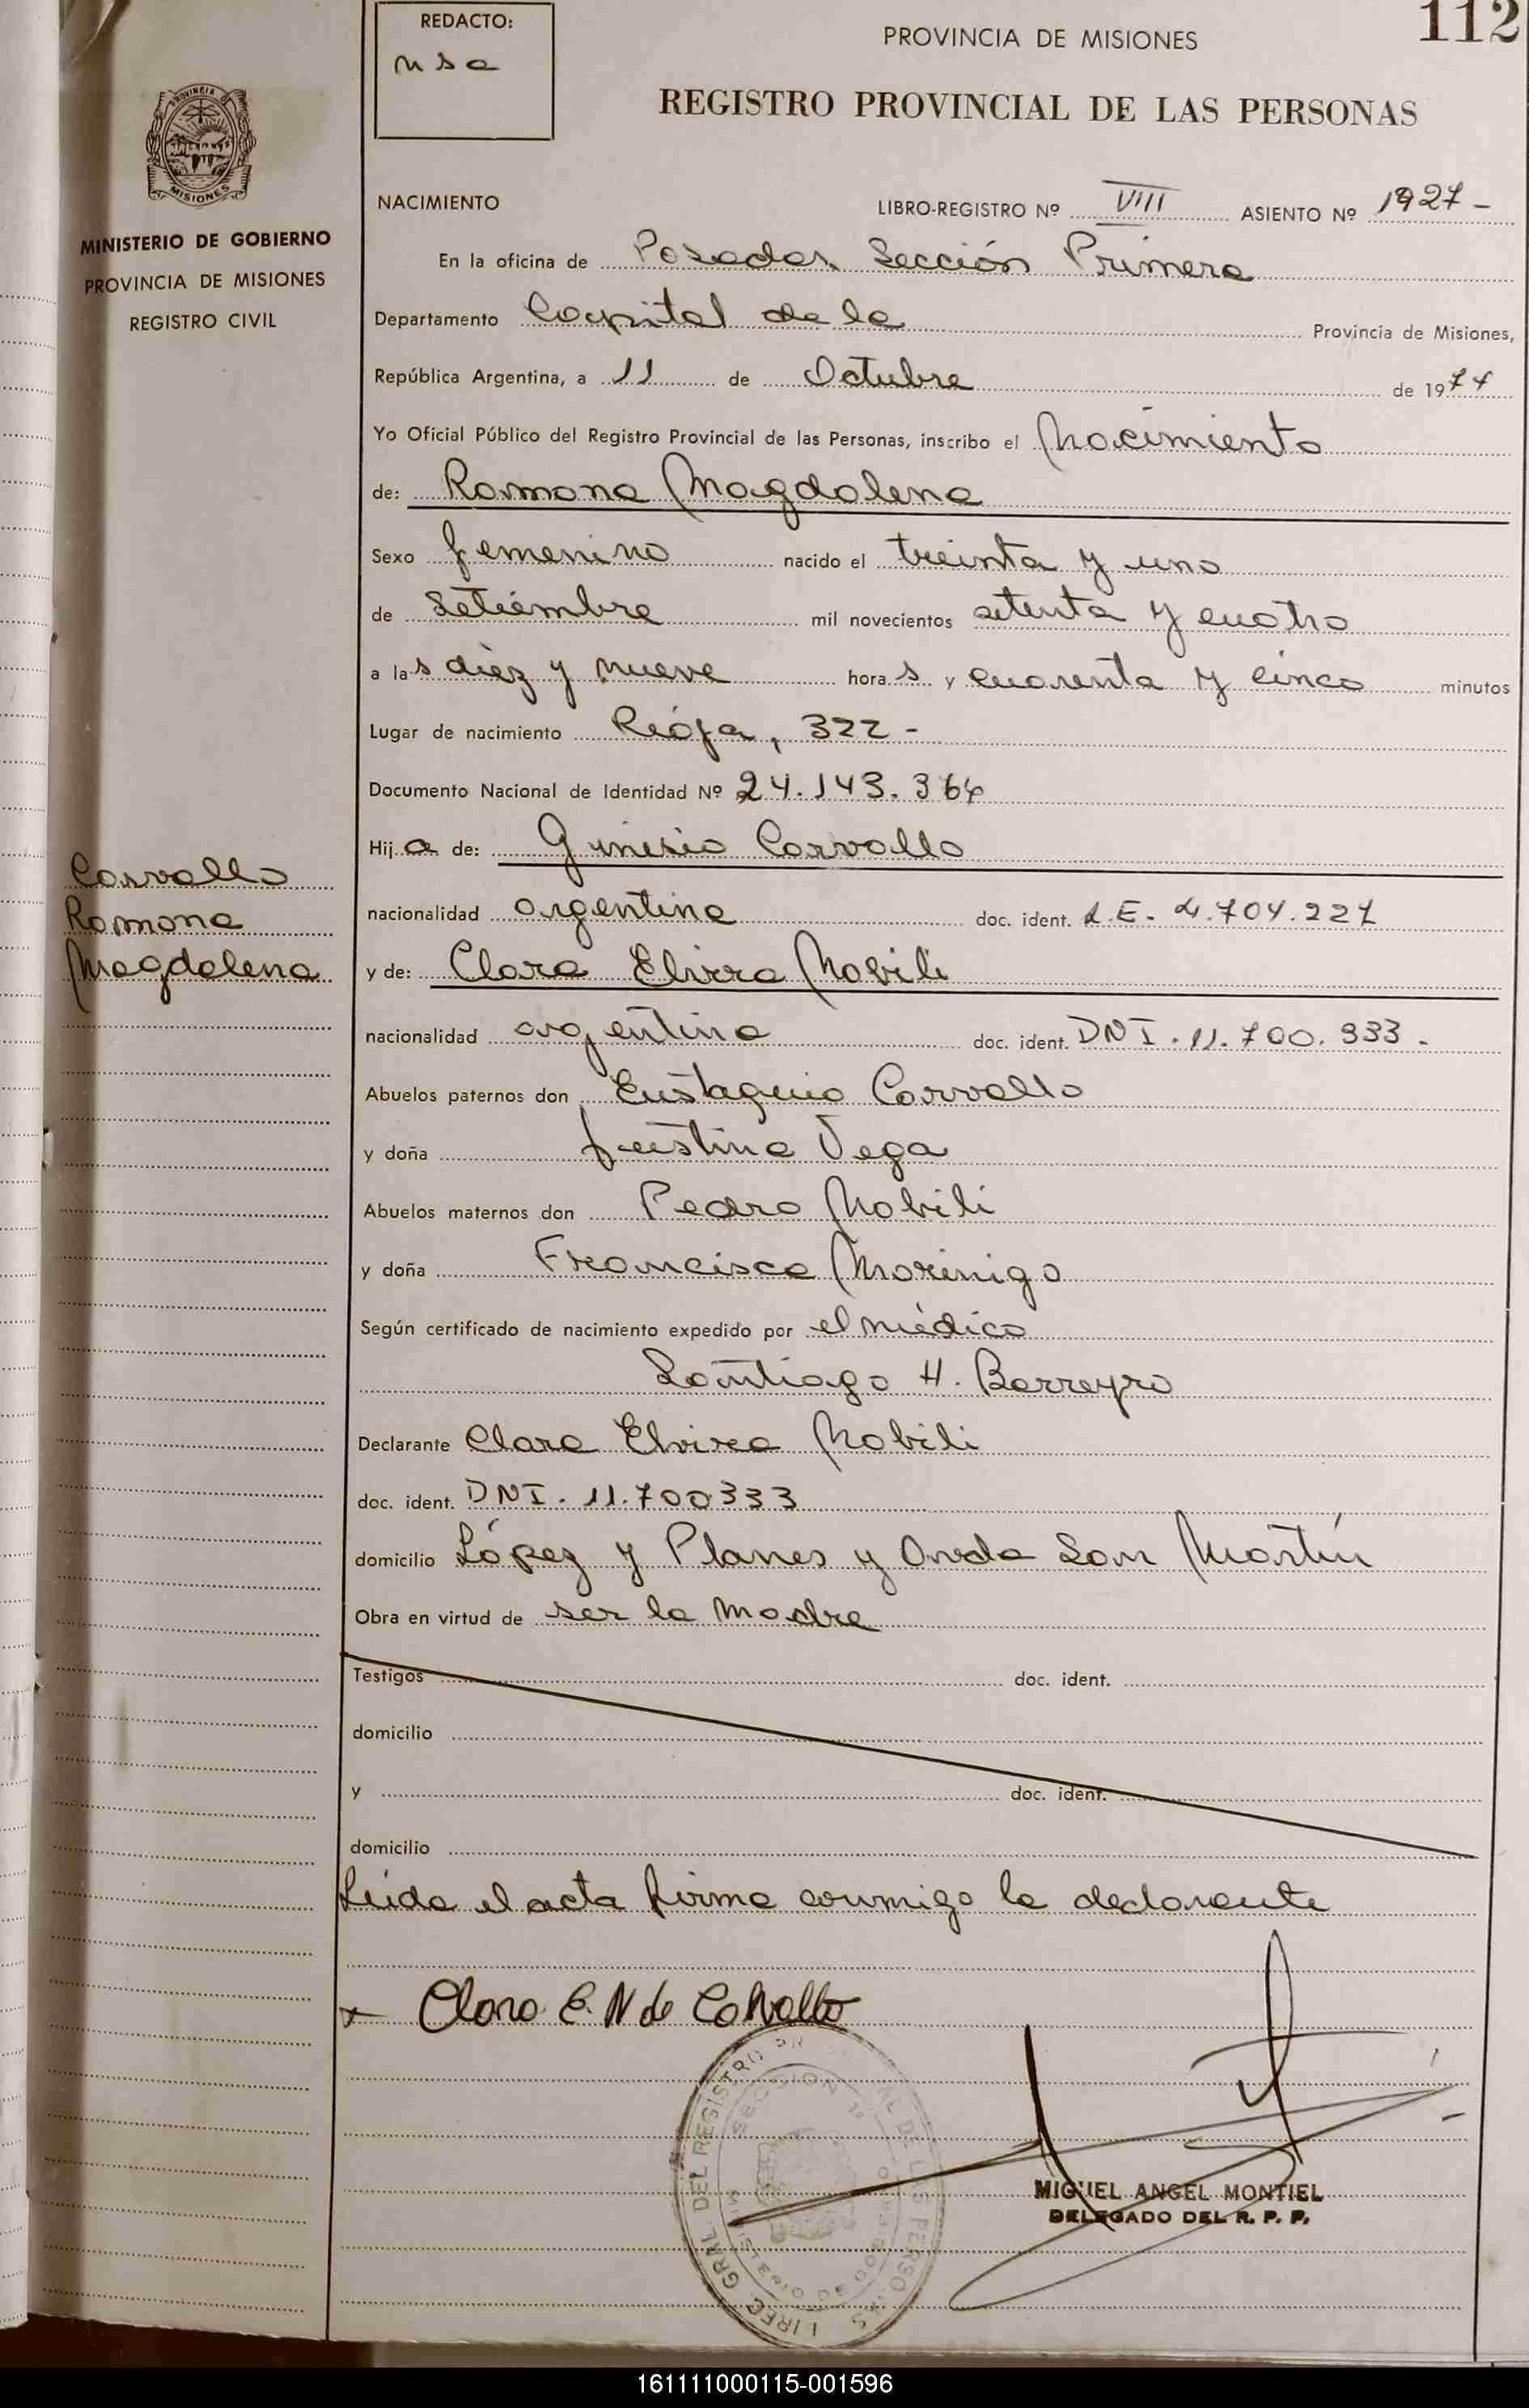 REDACTO:
nsa
PROVINCIA DE MISIONES
112
REGISTRO PROVINCIAL DE LAS PERSONAS
PROVINCIA
MISIONES
MINISTERIO DE GOBIERNO
PROVINCIA DE MISIONES
REGISTRO CIVIL
NACIMIENTO
LIBRO-REGISTRO Nº VIII ASIENTO Nº 1927 -
En la oficina de Posadas Sección Primera
Departamento Capital de la Provincia de Misiones,
República Argentina, a 11 de Octubre de 1974
Yo Oficial Público del Registro Provincial de las Personas, inscribo el Nacimiento
de: Ramona Magdalena
Sexo femenino nacido el treinta y uno
de Setiembre mil novecientos setenta y cuatro
a las diez y nueve horas y cuarenta y cinco minutos
Lugar de nacimiento Rioja, 322 -
Documento Nacional de Identidad Nº 24.143.364
Hija de: Ginesio Carvallo
Carvallo
Ramona
Magdalena
nacionalidad argentina doc. ident. L.E. 4.704.227
y de: Clara Elvira Nobili
nacionalidad argentina doc. ident. DNI. 11.700.333 -
Abuelos paternos don Eustaquio Carvallo
y doña faustina Vega
Abuelos maternos don Pedro Nobili
y doña Francisca Morinigo
Según certificado de nacimiento expedido por el médico
Santiago H. Barreyro
Declarante Clara Elvira Nobili
doc. ident. DNI. 11.700333
domicilio López y Planes y Avda San Martín
Obra en virtud de ser la madre
Testigos doc. ident.
domicilio
y doc. ident.
domicilio
Leida el acta firma conmigo la declarante
x Clara E. N de Carvallo
MIGUEL ANGEL MONTIEL
DELEGADO DEL R. P. P.
161111000115-001596